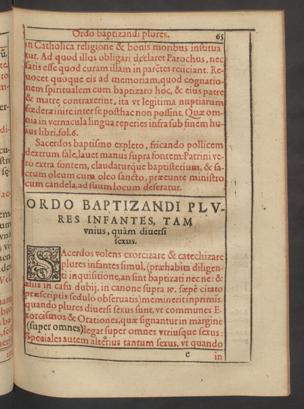 Ordo baptizandi plures. 65
in Catholica religione & bonis moribus instituatur. Ad quod illos obligari declaret Parochus, nec
satis esse quod curam illam in parētes reiiciant. Re
uocet quoque eis ad memoriam, quod cognatio-
nem spiritualem cum baptizato hoc, & eius patre
& matre contraxerint, ita vt legitima nuptiarum
fœdera inire inter se posthac non possint. Quæ om-
nia in vernacula lingua reperies infra sub finem hu-
ius libri, fol.6.
Sacerdos baptismo expleto, fricando pollicem
dextrum sale, lauet manus supra fontem: Patrini ve-
ro extra fontem, claudaturque baptisterium, & sa-
ctum oleum cum oleo sancto, præeunte ministro
cum candela, ad suum locum deferatur.
ORDO BAPTIZANDI PLV-
RES INFANTES, TAM
vnius, quàm diuersi
sexus.
SAcerdos volens exorcizare & catechizare
plures infantes simul, (præhabita diligen-
ti inquisitione, an sint baptizati nec ne: &
aliis in casu dubij, in canone supra
præscriptis sedulò obseruatis) meminerit inprimis
quando plures diuersi sexus sunt, vt communes E-
xorcismos & Orationes, quæ signantur in margine
(super omnes) legat super omnes vtriusque sexus:
Speciales autem alterius tantum sexus, vt quando
e in